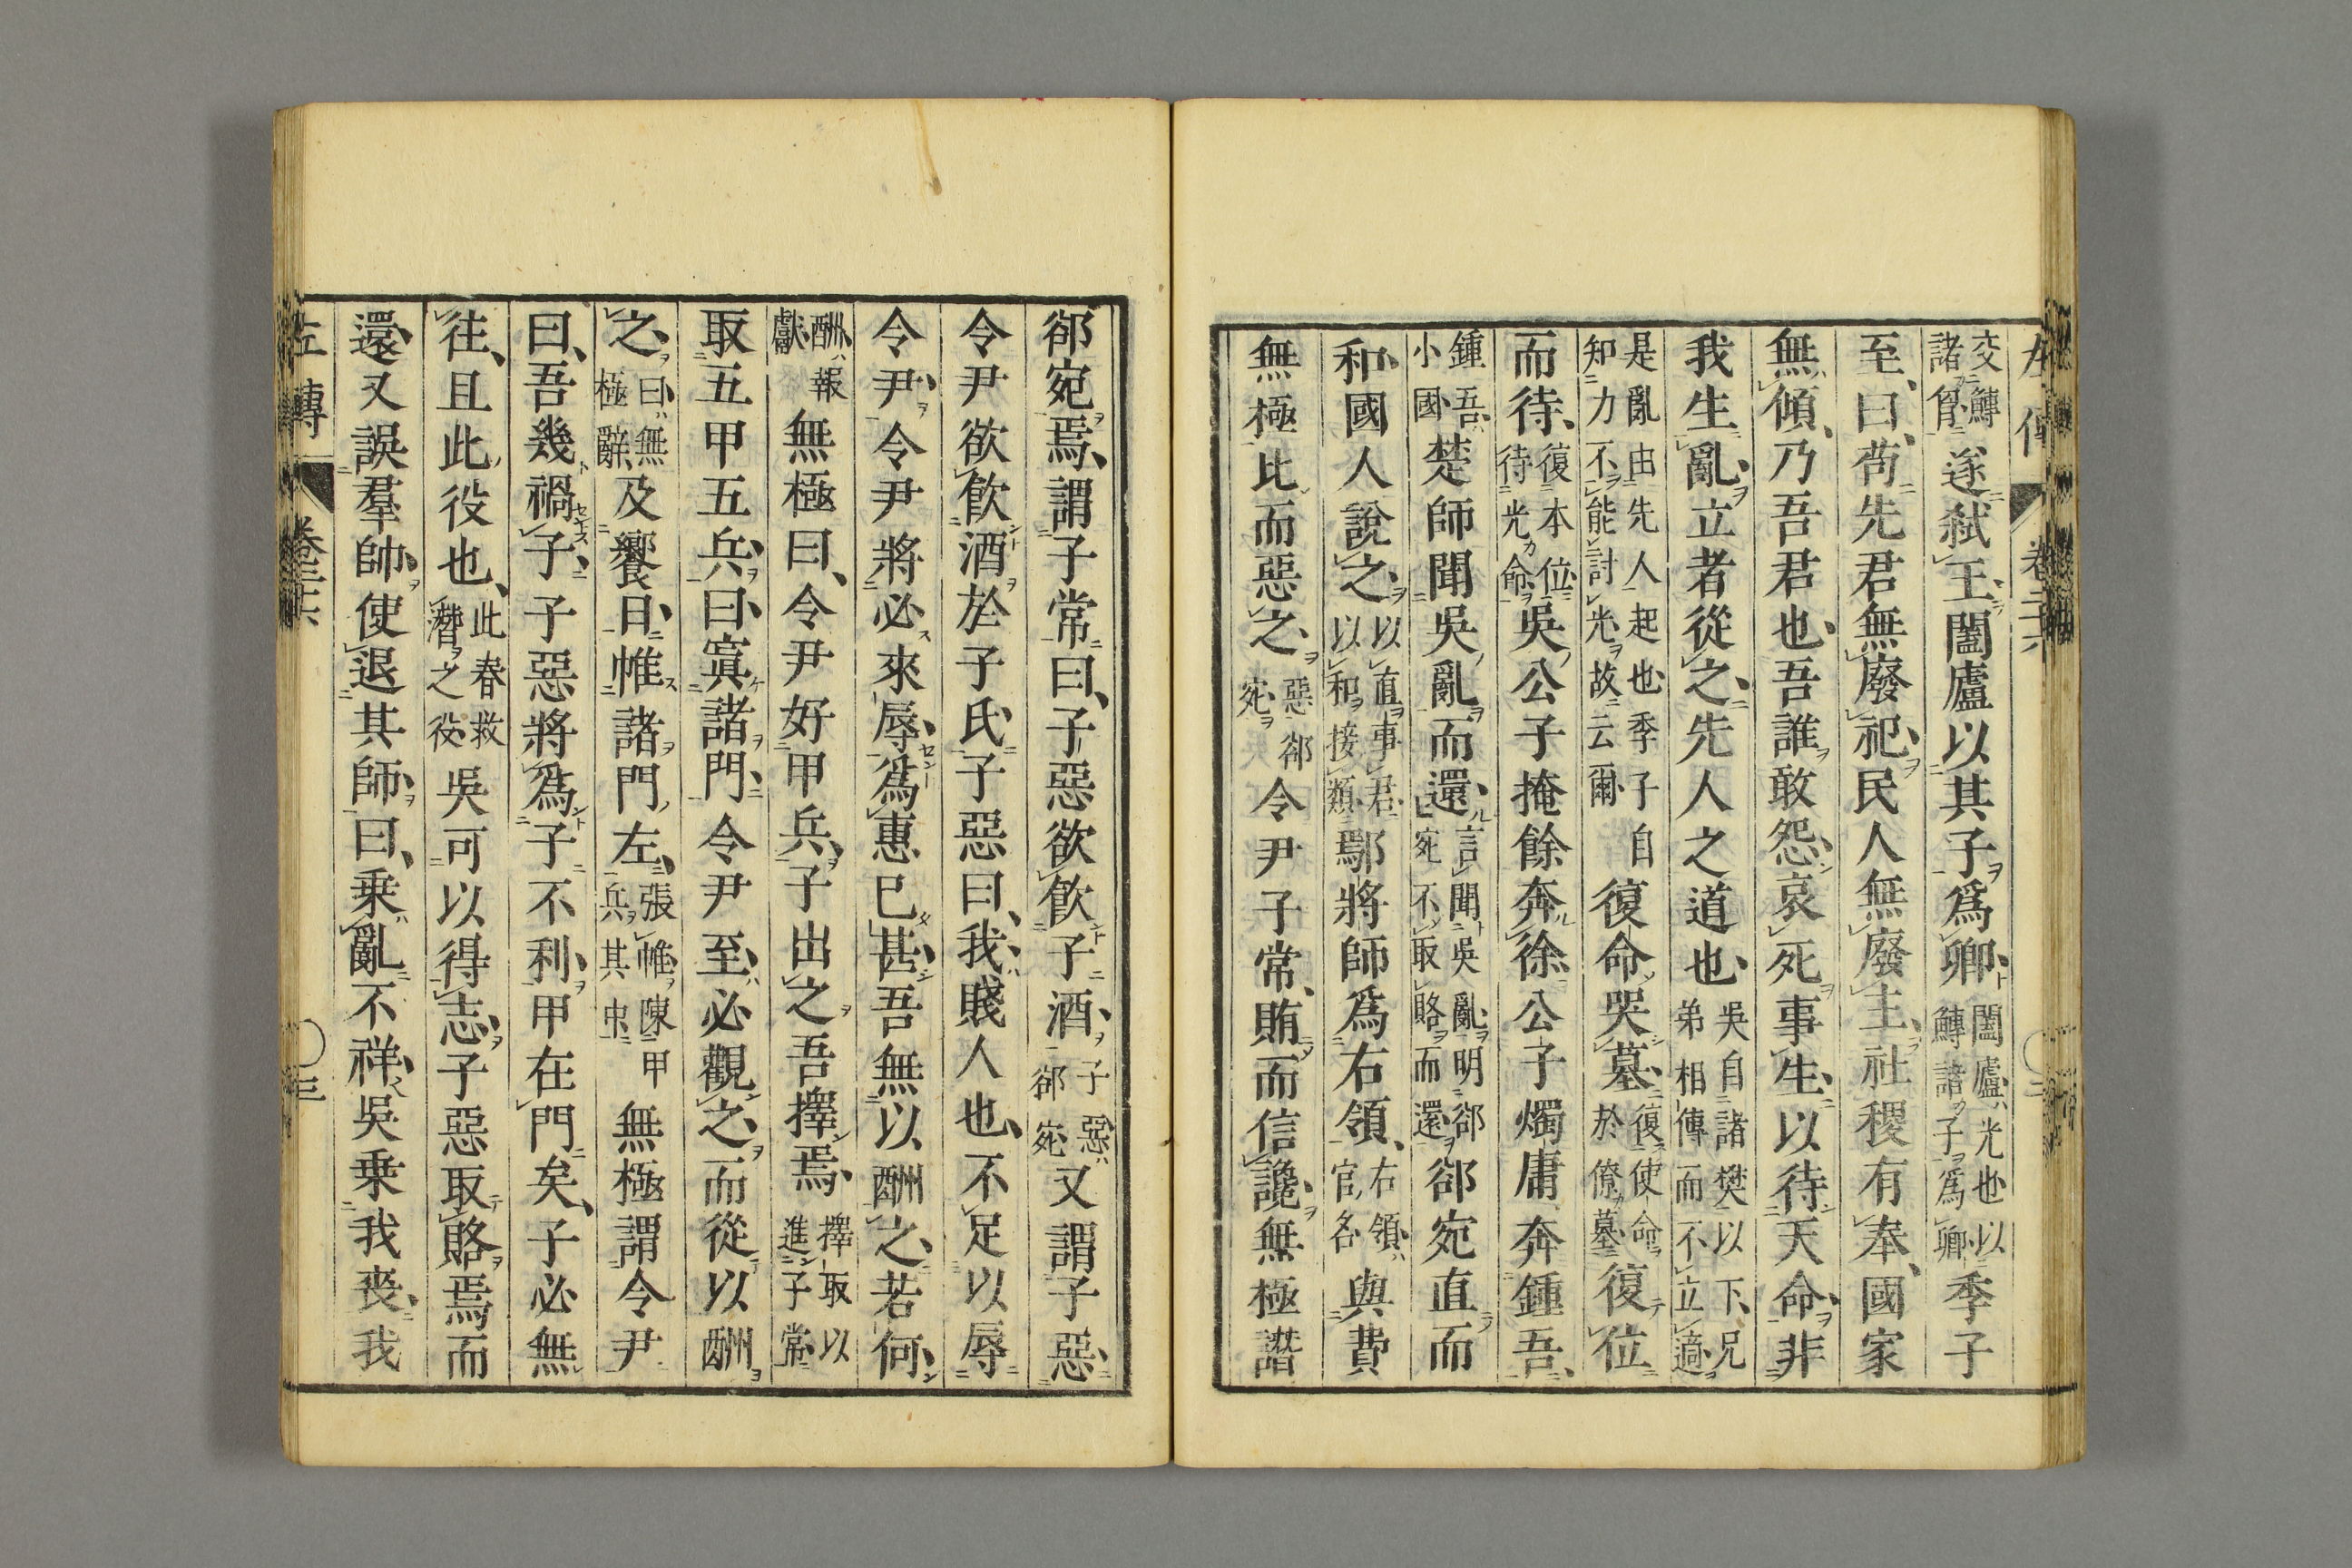 左傳 卷二十六 二
交鱄諸胷遂弑王闔廬以其子爲卿闔廬光也以鱄諸子爲卿季子
至曰茍先君無廢祀民人無廢主社稷有奉國家
無傾乃吾君也吾誰敢怨哀死事生以待天命非
我生亂立者從之先人之道也吳自諸樊以下兄弟相傳而不立適
是亂由先人起也季子自知力不能討光故云爾復命哭墓復使命於僚墓復位
而待復本位待光命吳公子掩餘奔徐公子燭庸奔鍾吾
鍾吾小國楚師聞吳亂而還言聞吳亂明郤宛不取賂而還郤宛直而
和國人說之以直事君以和接類鄢將師爲右領右領官名與費
無極比而惡之惡郤宛令尹子常賄而信讒無極譖
郤宛焉謂子常曰子惡欲飮子酒子惡郤宛又謂子惡
令尹欲飮酒於子氏子惡曰我賤人也不足以辱
令尹令尹將必來辱爲惠已甚吾無以酬之若何
酬報獻無極曰令尹好甲兵子出之吾擇焉擇取以進子常
取五甲五兵曰寘諸門令尹至必觀之而從以酬
之曰無極辭及饗日帷諸門左張帷陳甲兵其中無極謂令尹
曰吾幾禍子子惡將爲子不利甲在門矣子必無
往且此役也此春救潛之役吳可以得志子惡取賂焉而
還又誤羣帥使退其師曰乗亂不祥吳乗我喪我
左傳 卷二十六 三